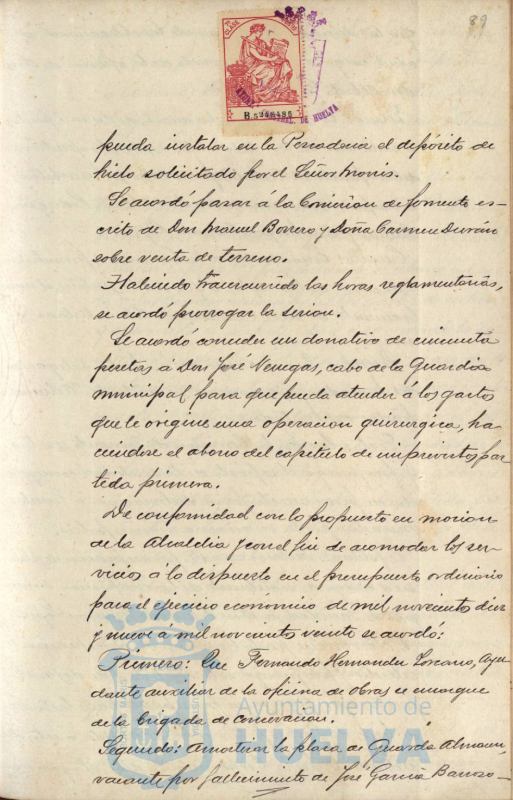 89
7ª CLASE
B.5246486
HUELVA
pueda instalar en la Pescaderia el depósito de
hielo solicitado por el Señor Morris.
Se acordó pasar á la Comision de fomento es-
crito de Don Manuel Borrero y Doña Carmen Durán
sobre venta de terreno.
Habiendo transcurrido las horas reglamentarias,
se acordó prorrogar la sesion.
Se acordó conceder un donativo de cincuenta
pesetas á Don José Venegas, cabo de la Guardia
municipal para que pueda atender á los gastos
que le origine una operacion quirurgica, ha-
ciendose el abono del capitulo de imprevistos par
tida primera.
De conformidad con lo propuesto en mocion
de la Alcaldia y con el fin de acomodar los ser-
vicios á lo dispuesto en el presupuesto ordinario
para el ejercicio económico de mil novecientos diez
y nueve á mil novecientos veinte se acordó:
Primero: Que Fernando Hernandez Lozano, Ayu
dante auxiliar de la oficina de obras se encargue
de la brigada de conservacion.
Segundo: Amortizar la plaza de Guarda Almacen,
vacante por fallecimiento de José Garcia Barroso-
Ayuntamiento de
HUELVA